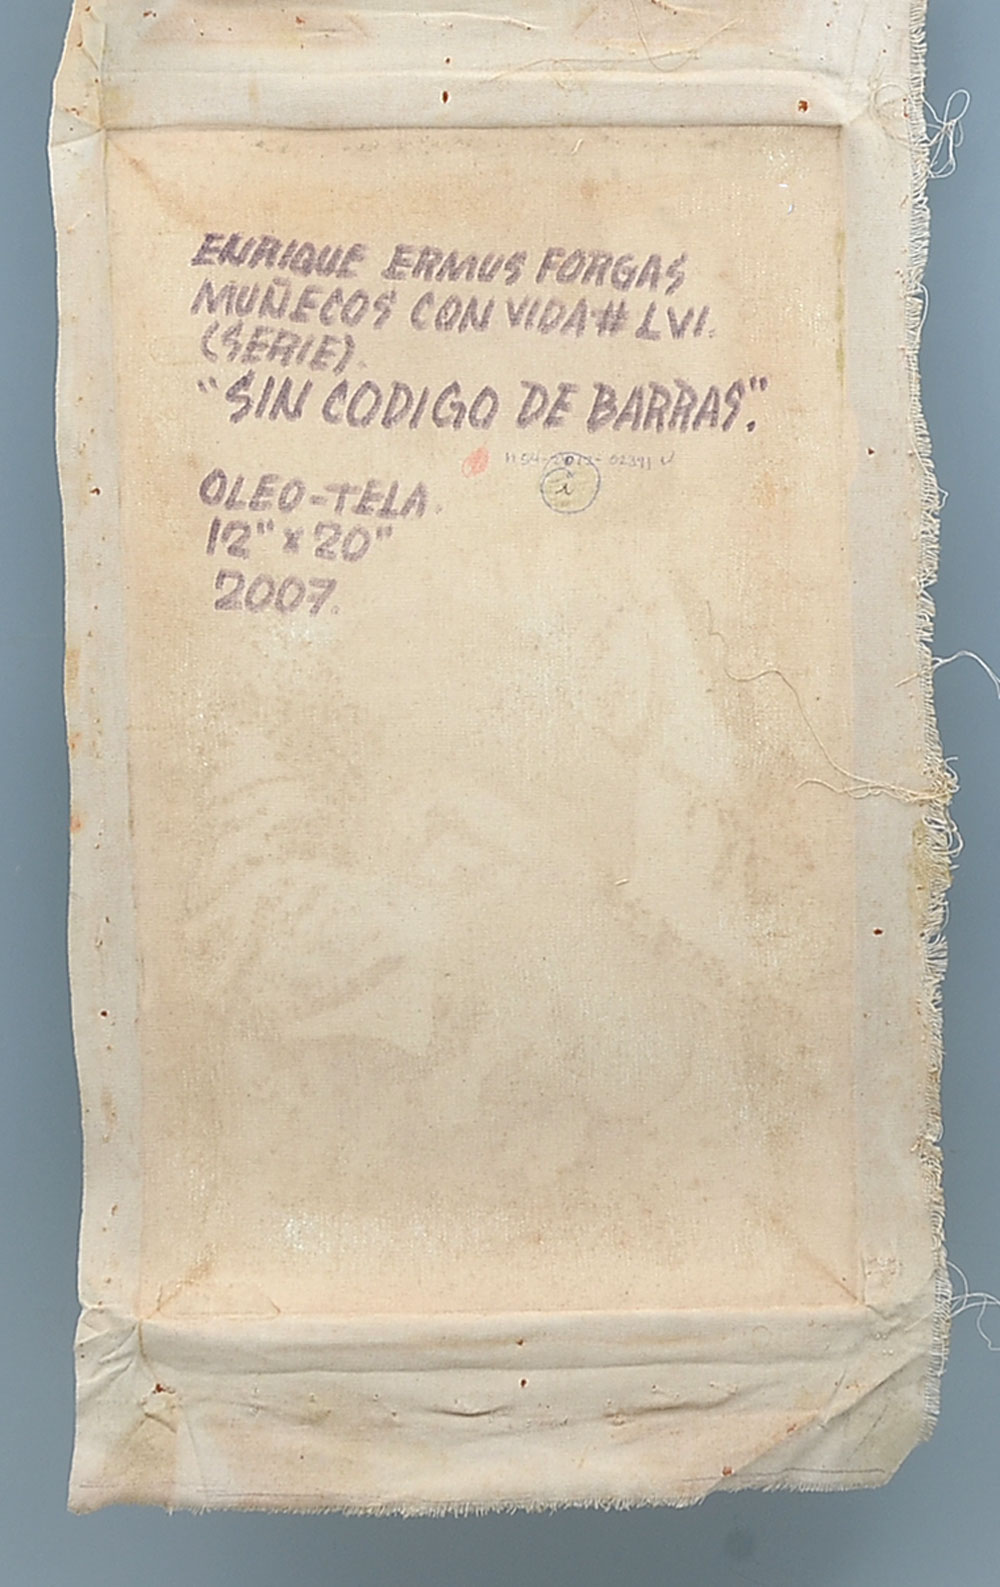 ENRIQUE ERMUS FORGAS
MUÑECOS CON VIDA # LVI.
(SERIE).
"SIN CODIGO DE BARRAS".
OLEO-TELA.
12" x 20"
2007.